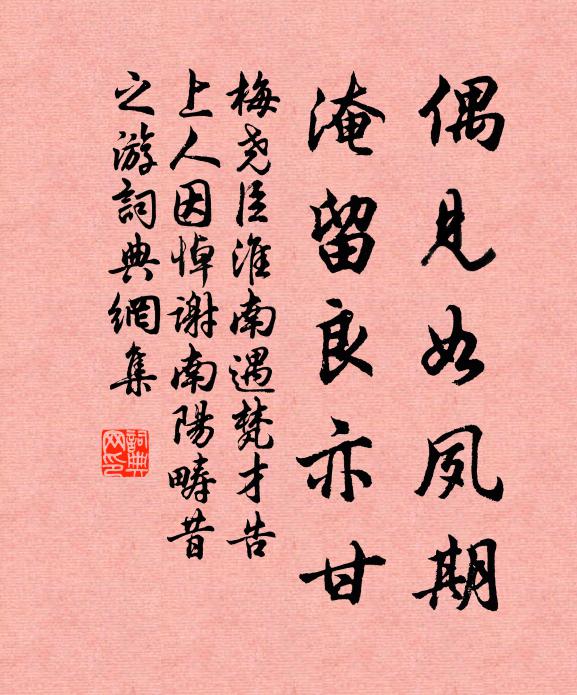 偶見如夙期
淹留良亦甘
梅堯臣淮南遇梵才吿
上人因悼謝南陽疇昔
之游詞典網集
詞典
网印